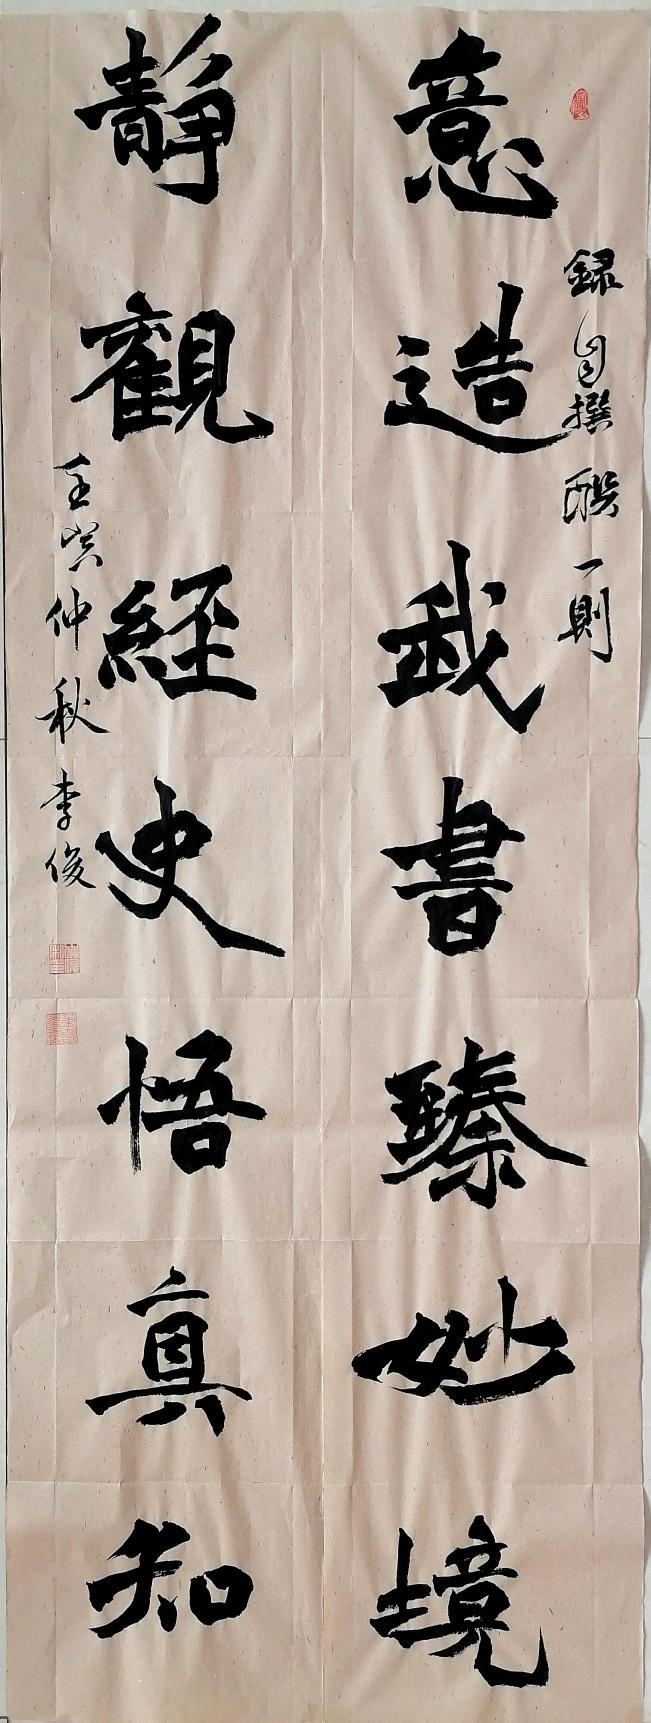 録自撰聯一則
意造我書臻妙境
靜觀經史悟真知
壬寅仲秋李俊